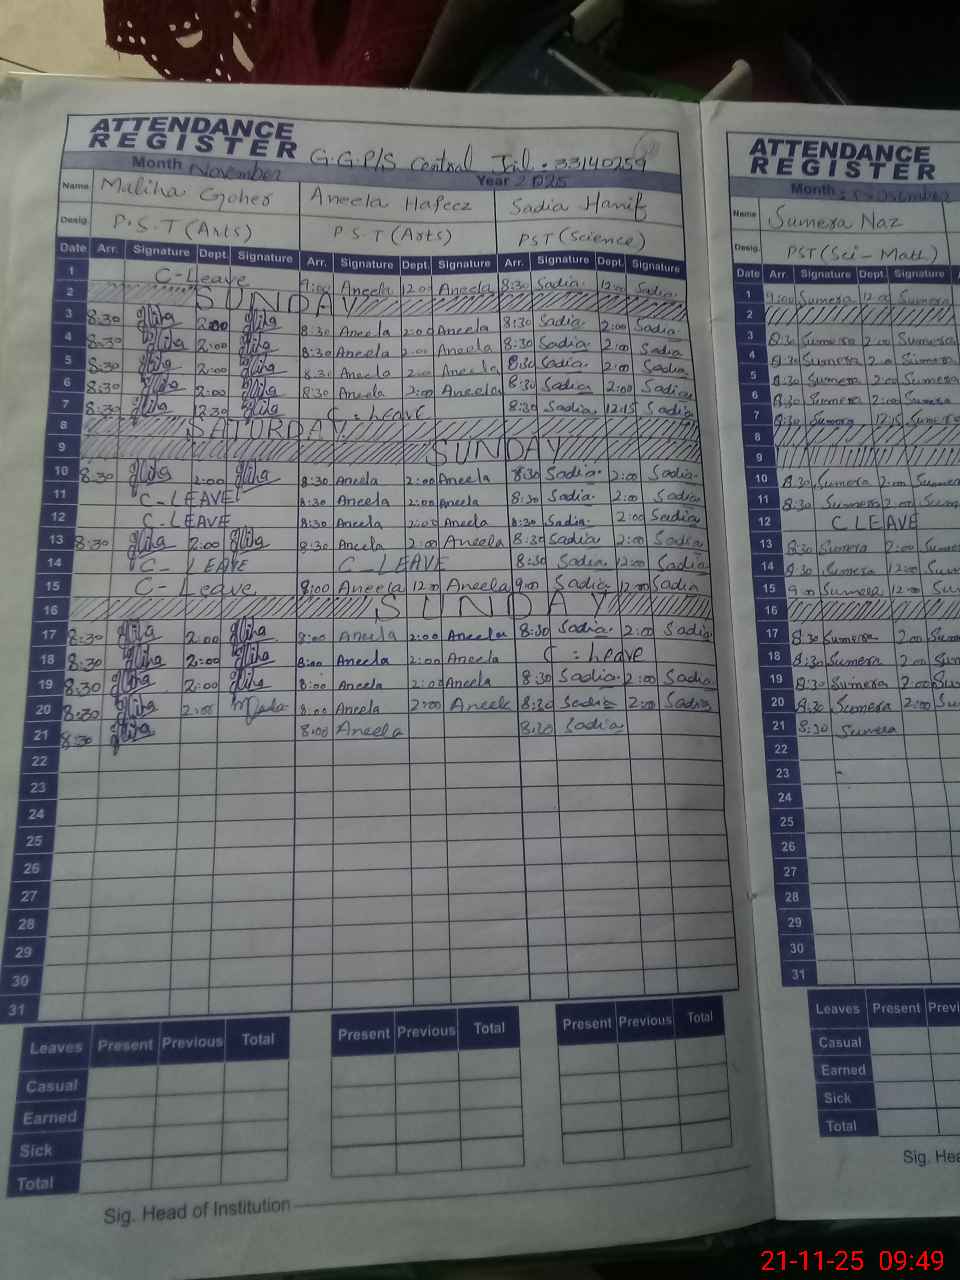 ATTENDANCE
REGISTER G.G.P/S Central Jil. 33140259
Month November Year 2025
Name Maliha Goher Aneela Hafeez Sadia Hanif
Desig. P.S.T (Arts) P.S.T (Arts) PST (Science)
Date Arr. Signature Dept. Signature Arr. Signature Dept. Signature Arr. Signature Dept. Signature
1 C-Leave 9:00 Aneela 12:00 Aneela 8:30 Sadia 12:00 Sadia
2 SUNDAY
3 8:30 2:00 8:30 Aneela 2:00 Aneela 8:30 Sadia 2:00 Sadia
4 8:30 2:00 8:30 Aneela 2:00 Aneela 8:30 Sadia 2:00 Sadia
5 8:30 2:00 8:30 Aneela 2:00 Aneela 8:30 Sadia 2:00 Sadia
6 8:30 2:00 8:30 Aneela 2:00 Aneela 8:30 Sadia 2:00 Sadia
7 8:30 12:30 C-LEAVE 8:30 Sadia 12:15 Sadia
8 SATURDAY
9 SUNDAY
10 8:30 2:00 8:30 Aneela 2:00 Aneela 8:30 Sadia 2:00 Sadia
11 C-LEAVE 8:30 Aneela 2:00 Aneela 8:30 Sadia 2:00 Sadia
12 C-LEAVE 8:30 Aneela 2:00 Aneela 8:30 Sadia 2:00 Sadia
13 8:30 2:00 8:30 Aneela 2:00 Aneela 8:30 Sadia 2:00 Sadia
14 C-LEAVE C-LEAVE 8:30 Sadia 12:00 Sadia
15 C-Leave 8:00 Aneela 12:00 Aneela 9:00 Sadia 12:00 Sadia
16 SUNDAY
17 8:30 2:00 8:00 Aneela 2:00 Aneela 8:30 Sadia 2:00 Sadia
18 8:30 2:00 8:00 Aneela 2:00 Aneela C-Leave
19 8:30 2:00 8:00 Aneela 2:00 Aneela 8:30 Sadia 2:00 Sadia
20 8:30 2:00 8:00 Aneela 2:00 Aneela 8:30 Sadia 2:00 Sadia
21 8:30 8:00 Aneela 8:30 Sadia
22
23
24
25
26
27
28
29
30
31
Leaves Present Previous Total Present Previous Total Present Previous Total
Casual
Earned
Sick
Total
Sig. Head of Institution
ATTENDANCE
REGISTER
Month
Name Sumera Naz
Desig. PST (Sci-Math)
Date Arr. Signature Dept. Signature
1 9:00 Sumera 12:00 Sumera
2
3 8:30 Sumera 2:00 Sumera
4 8:30 Sumera 2:00 Sumera
5 8:30 Sumera 2:00 Sumera
6 8:30 Sumera 2:00 Sumera
7 8:30 Sumera 12:15 Sumera
8
9
10 8:30 Sumera 2:00 Sumera
11 8:30 Sumera 2:00 Sum
12 C LEAVE
13 8:30 Sumera 2:00 Sum
14 8:30 Sumera 12:00 Sum
15 9:00 Sumera 12:00 Sum
16
17 8:30 Sumera 2:00 Sum
18 8:30 Sumera 2:00 Sum
19 8:30 Sumera 2:00 Sum
20 8:30 Sumera 2:00 Su
21 8:30 Sumera
22
23
24
25
26
27
28
29
30
31
Leaves Present Previ
Casual
Earned
Sick
Total
Sig. Hea
21-11-25 09:49